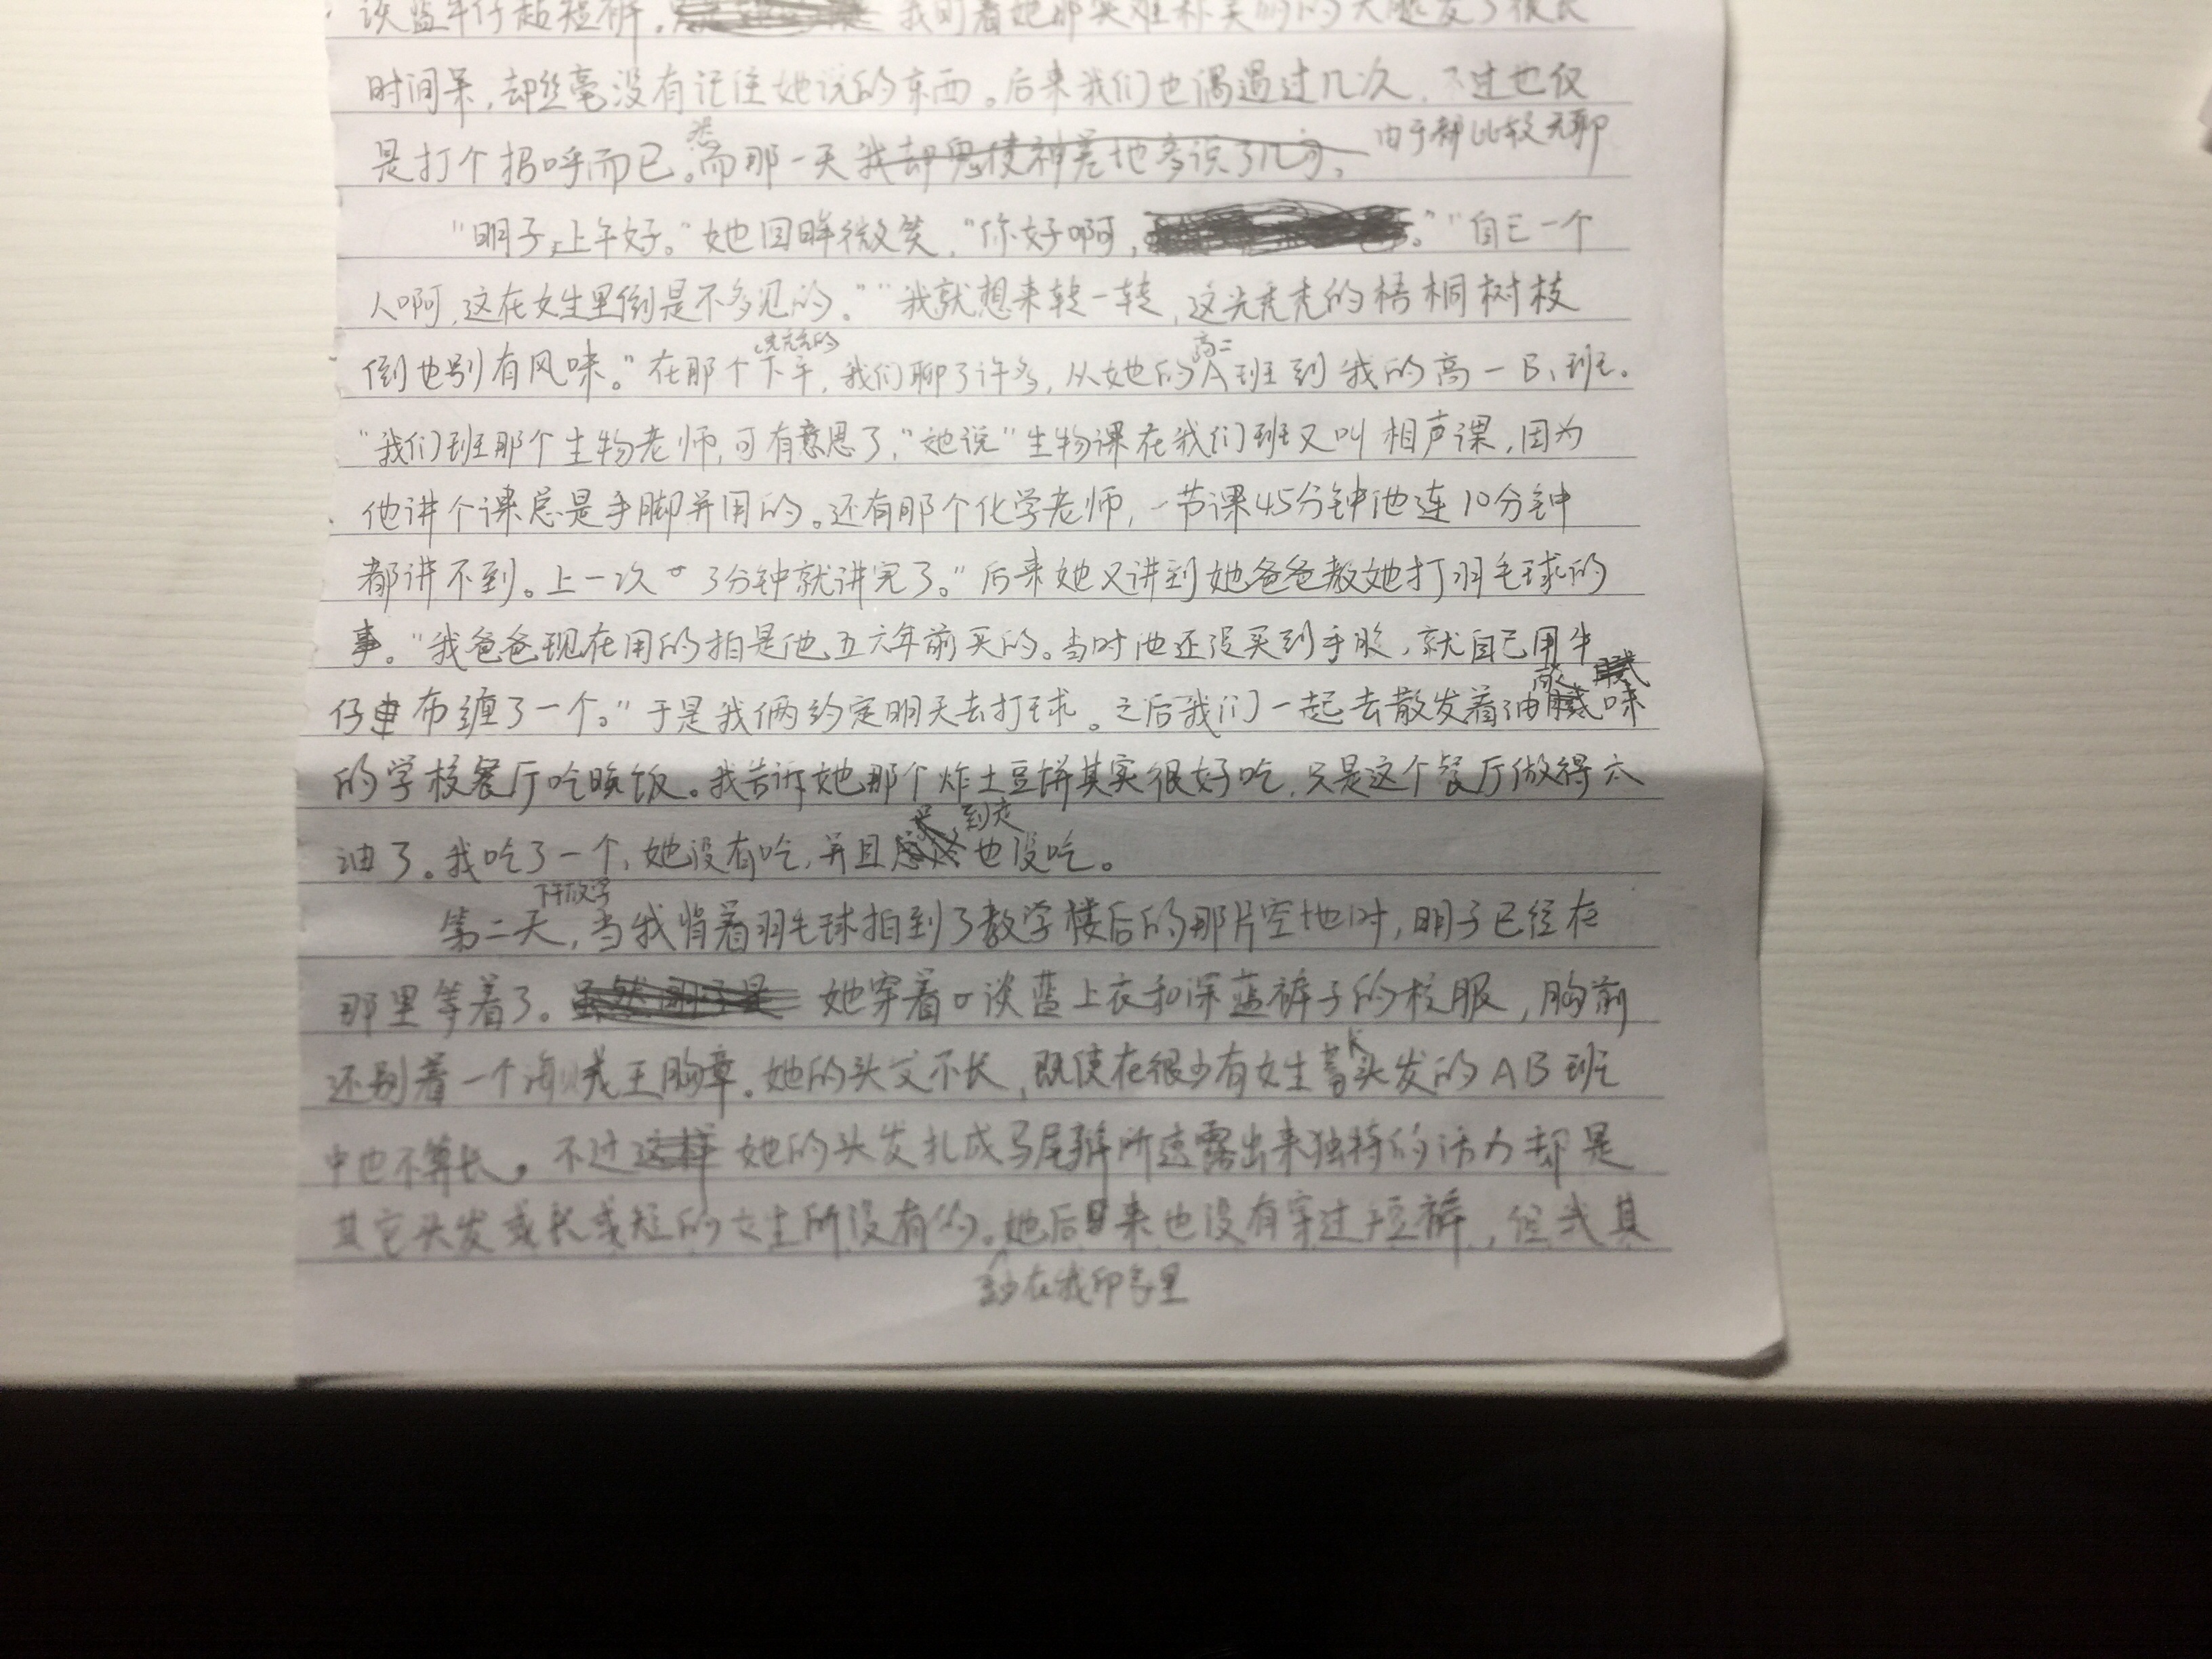 时间呆，却丝毫没有记住她说的东西。后来我们也偶遇过几次，不过也仅
由于都比较无聊
是打个招呼而已。而那一天我却鬼使神差地多说了几句。
"明子，上午好。"她回眸微笑，"你好啊，。""自己一个
人啊，这在女生里倒是不多见的。""我就想来转一转，这光秃秃的梧桐树枝
高二
倒也别有风味。"在那个下午，我们聊了许多，从她的A班到我的高一B、班。
"我们班那个生物老师，可有意思了，"她说"生物课在我们班又叫相声课，因为
他讲个课总是手脚并用的。还有那个化学老师，一节课45分钟他连10分钟
都讲不到。上一次 3分钟就讲完了。"后来她又讲到她爸爸教她打羽毛球的
事。"我爸爸现在用的拍是他五六年前买的。当时他还没买到手胶，就自己用牛
仔布缠了一个。"于是我俩约定明天去打球。之后我们一起去散发着油味
的学校餐厅吃晚饭。我告诉她那个炸土豆饼其实很好吃，只是这个餐厅做得太
到走
油了。我吃了一个，她没有吃，并且也没吃。
下午放学
第二天，当我背着羽毛球拍到了教学楼后的那片空地时，明子已经在
那里等着了。虽然明子是 她穿着淡蓝上衣和深蓝裤子的校服，胸前
长
还别着一个海贼王胸章。她的头发不长，既使在很少有女生蓄头发的AB班
中也不算长。不过这样她的头发扎成马尾辫所透露出来独特的活力却是
其它头发或长或短的女生所没有的。她后来也没有穿过短裤，但我其
至少在我印象里